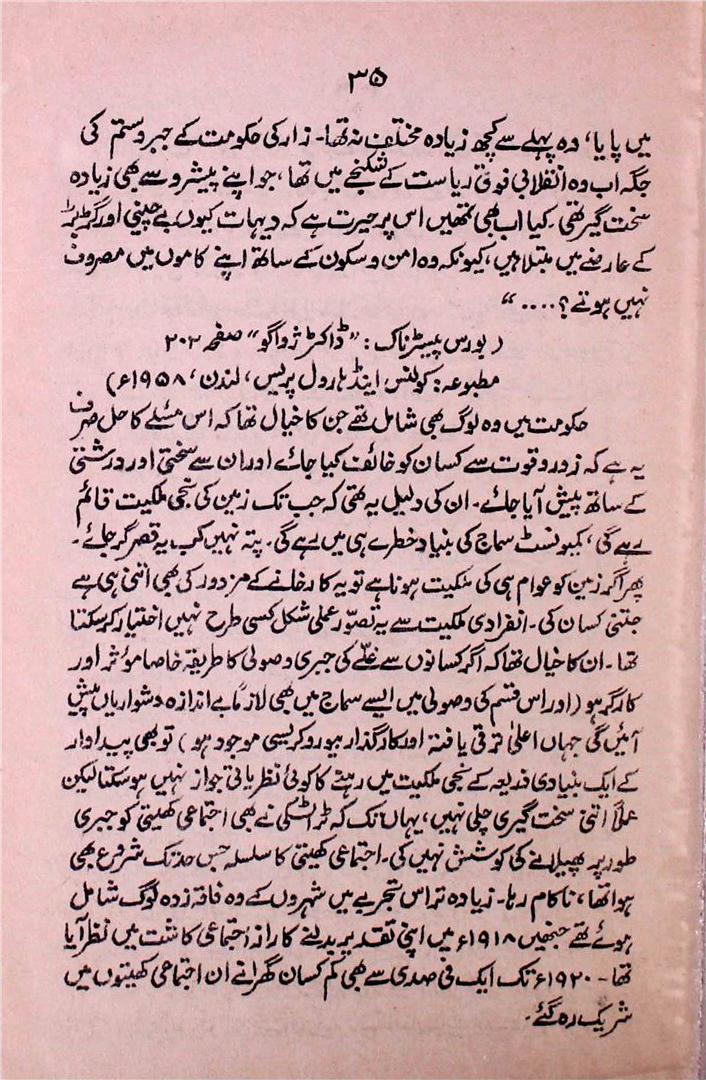 ۳۵
میں پایا، وہ پہلے سے کچھ زیادہ مختلف نہ تھا۔ زار کی حکومت کے جبر و ستم کی
جگہ اب وہ انقلابی فوق ریاست کے شکنجے میں تھا، جو اپنے پیشرو سے بھی زیادہ
سخت گیر تھی۔ کیا اب بھی تمھیں اس پر حیرت ہے کہ دیہات کیوں بے چینی اور گڑبڑ
کے عارضے میں مبتلا ہیں، کیونکہ وہ امن و سکون کے ساتھ اپنے کاموں میں مصروف
نہیں ہوتے؟ .... “
(بورس پیسٹرناک: ”ڈاکٹر ژواگو“ صفحہ ۲۰۲
مطبوعہ: کولنس اینڈ ہارول پریس، لندن، ۱۹۵۸ء)
حکومت میں وہ لوگ بھی شامل تھے جن کا خیال تھا کہ اس مسئلے کا حل صرف
یہ ہے کہ زور و قوت سے کسان کو خائف کیا جائے اور ان سے سختی اور درشتی
کے ساتھ پیش آیا جائے۔ ان کی دلیل یہ تھی کہ جب تک زمین کی نجی ملکیت قائم
رہے گی، کمیونسٹ سماج کی بنیاد خطرے ہی میں رہے گی۔ پتہ نہیں کب یہ قصر گر جائے۔
پھر اگر زمین کو عوام ہی کی ملکیت ہونا ہے تو یہ کارخانے کے مزدور کی بھی اتنی ہی ہے
جتنی کسان کی۔ انفرادی ملکیت سے یہ تصوّر عملی شکل کسی طرح نہیں اختیار کر سکتا
تھا۔ ان کا خیال تھا کہ اگر کسانوں سے غلّے کی جبری وصولی کا طریقہ خاصا مؤثر اور
کارگر ہو (اور اس قسم کی وصولی میں ایسے سماج میں بھی لازماً بے اندازہ دشواریاں پیش
آئیں گی جہاں اعلیٰ ترقی یافتہ اور کارگذار بیوروکریسی موجود ہو) تو بھی پیداوار
کے ایک بنیادی ذریعہ کے نجی ملکیت میں رہنے کا کوئی نظریاتی جواز نہیں ہو سکتا لیکن
عملاً اتنی سخت گیری چلی نہیں، یہاں تک کہ ٹراٹسکی نے بھی اجتماعی کھیتی کو جبری
طور پر پھیلانے کی کوشش نہیں کی۔ اجتماعی کھیتی کا سلسلہ جس حد تک شروع بھی
ہوا تھا، ناکام رہا۔ زیادہ تر اس تجربے میں شہروں کے وہ فاقہ زدہ لوگ شامل
ہوئے تھے جنھیں ۱۹۱۸ء میں اپنی تقدیر بدلنے کا راز اجتماعی کاشت میں نظر آیا
تھا۔ ۱۹۲۰ء تک ایک فی صدی سے بھی کم کسان گھرانے ان اجتماعی کھیتوں میں
شریک رہ گئے۔